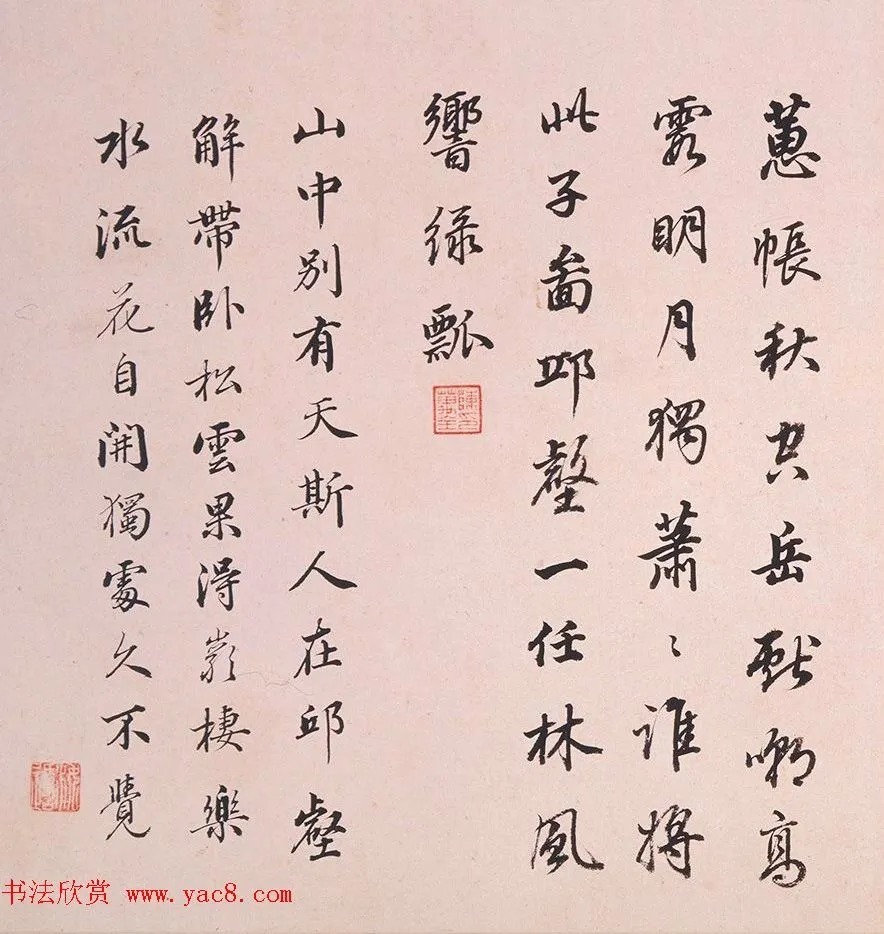 蕙帳秋空岳獻嘲高
霞明月獨蕭〻誰將
此子畫邱壑一任林風
響綠瓢
山中別有天斯人在邱壑
解帶卧松雲果得巖棲樂
水流花自開獨處久不覺
书法欣赏 www.yac8.com